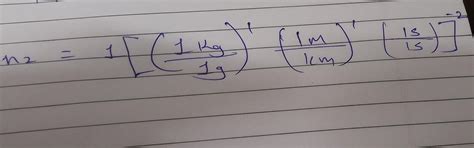 n2 = 1 [ ( 1 Kg / 1g )^1 ( 1m / km )^1 ( 1s / 1s ) ]^-2